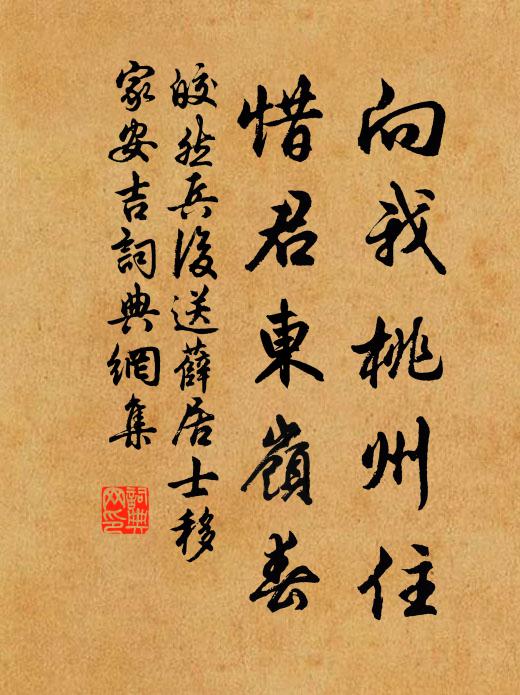 向我桃州住
惜君東嶺春
皎然兵後送薛居士移
家安吉詞典網集
詞典
网印